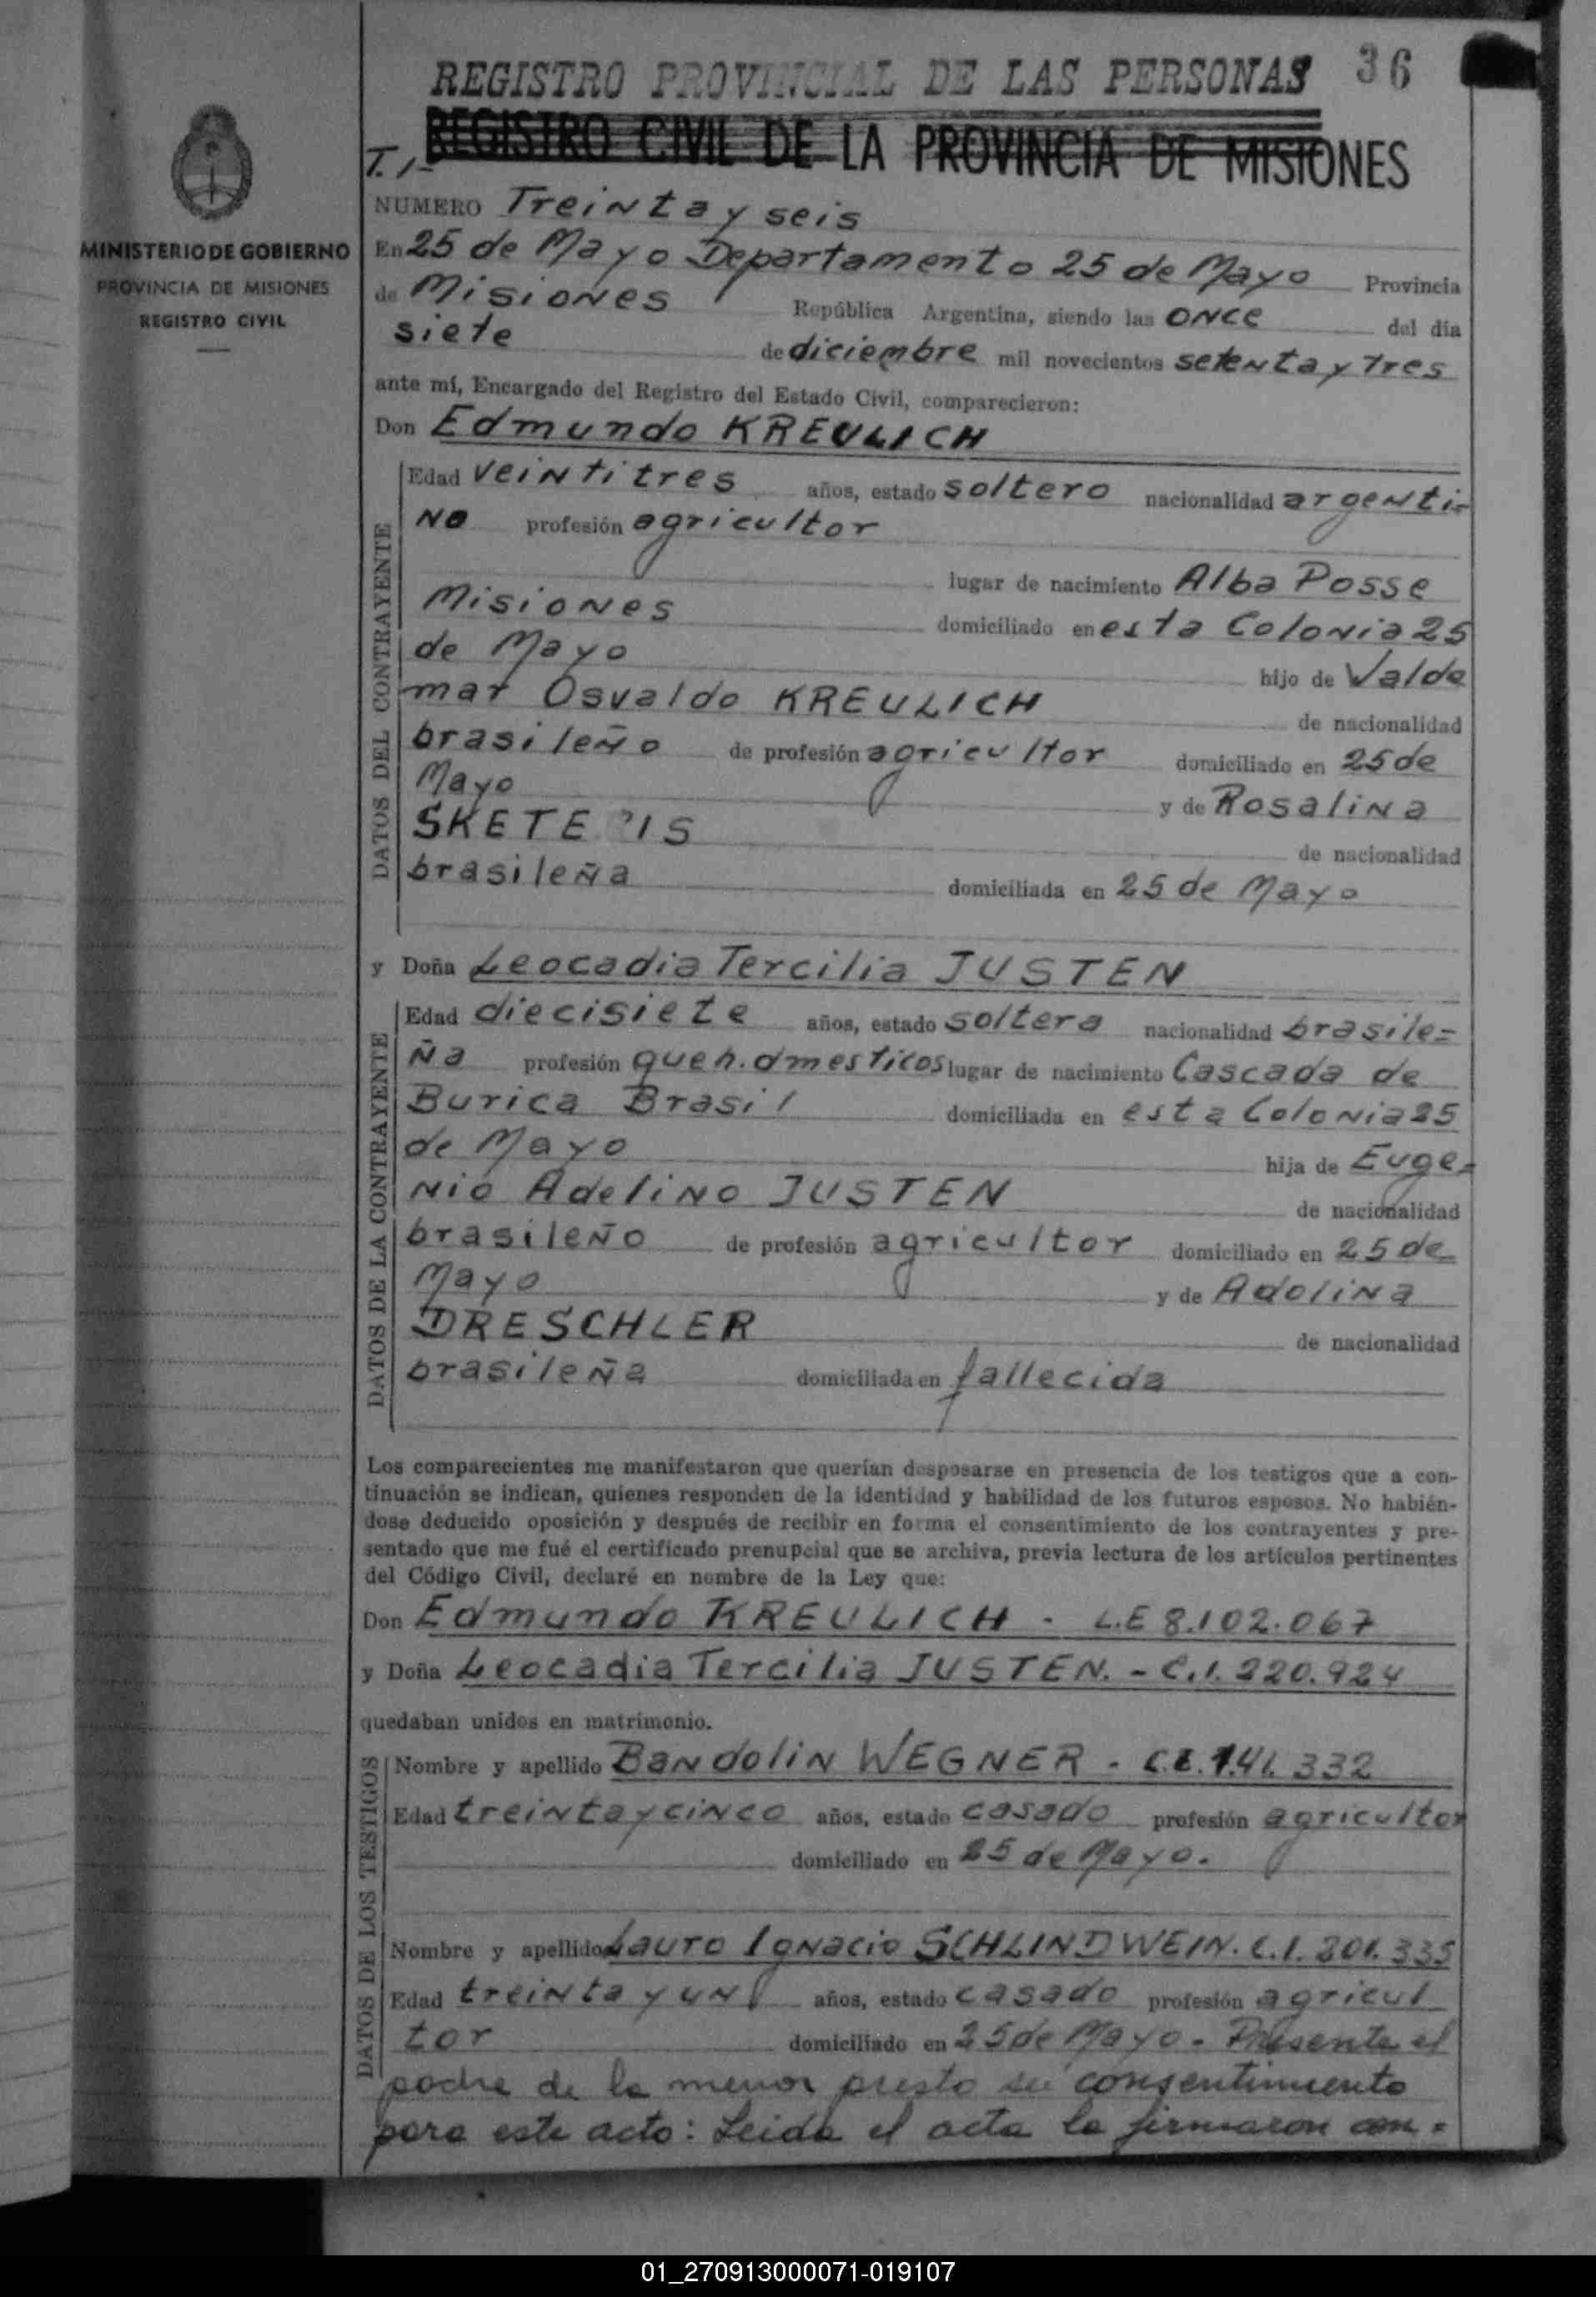 REGISTRO PROVINCIAL DE LAS PERSONAS 36
REGISTRO CIVIL DE LA PROVINCIA DE MISIONES
T. 1-
MINISTERIO DE GOBIERNO
PROVINCIA DE MISIONES
REGISTRO CIVIL
NUMERO Treinta y seis
En 25 de Mayo Departamento 25 de Mayo Provincia
de Misiones República Argentina, siendo las once del día
siete de diciembre mil novecientos setenta y tres
ante mí, Encargado del Registro del Estado Civil, comparecieron:
Don Edmundo KREULICH
DATOS DEL CONTRAYENTE
Edad veintitres años, estado soltero nacionalidad argenti=
no profesión agricultor
lugar de nacimiento Alba Posse
Misiones domiciliado en esta Colonia 25
de Mayo hijo de Valde
mar Osvaldo KREULICH de nacionalidad
brasileño de profesión agricultor domiciliado en 25 de
Mayo y de Rosalina
SKETE 'IS de nacionalidad
brasileña domiciliada en 25 de Mayo
y Doña Leocadia Tercilia JUSTEN
DATOS DE LA CONTRAYENTE
Edad diecisiete años, estado soltera nacionalidad brasile=
ña profesión queh. dmesticos lugar de nacimiento Cascada de
Burica Brasil domiciliada en esta Colonia 25
de Mayo hija de Euge=
nio Adelino JUSTEN de nacionalidad
brasileño de profesión agricultor domiciliado en 25 de
Mayo y de Adolina
DRESCHLER de nacionalidad
brasileña domiciliada en fallecida
Los comparecientes me manifestaron que querían desposarse en presencia de los testigos que a con-
tinuación se indican, quienes responden de la identidad y habilidad de los futuros esposos. No habién-
dose deducido oposición y después de recibir en forma el consentimiento de los contrayentes y pre-
sentado que me fué el certificado prenupcial que se archiva, previa lectura de los artículos pertinentes
del Código Civil, declaré en nombre de la Ley que:
Don Edmundo KREULICH - L.E 8.102.067
y Doña Leocadia Tercilia JUSTEN. - C.I. 220.924
quedaban unidos en matrimonio.
DATOS DE LOS TESTIGOS
Nombre y apellido Bandolin WEGNER - C.I. 141. 332
Edad treinta y cinco años, estado casado profesión agricultor
domiciliado en 25 de Mayo.
Nombre y apellido Lauro Ignacio SCHLINDWEIN. C.I. 201. 335
Edad treinta y un años, estado casado profesión agricul
tor domiciliado en 25 de Mayo - Presente el
padre de la menor presto su consentimiento
para este acto: Leida el acta la firmaron con-
01_270913000071-019107